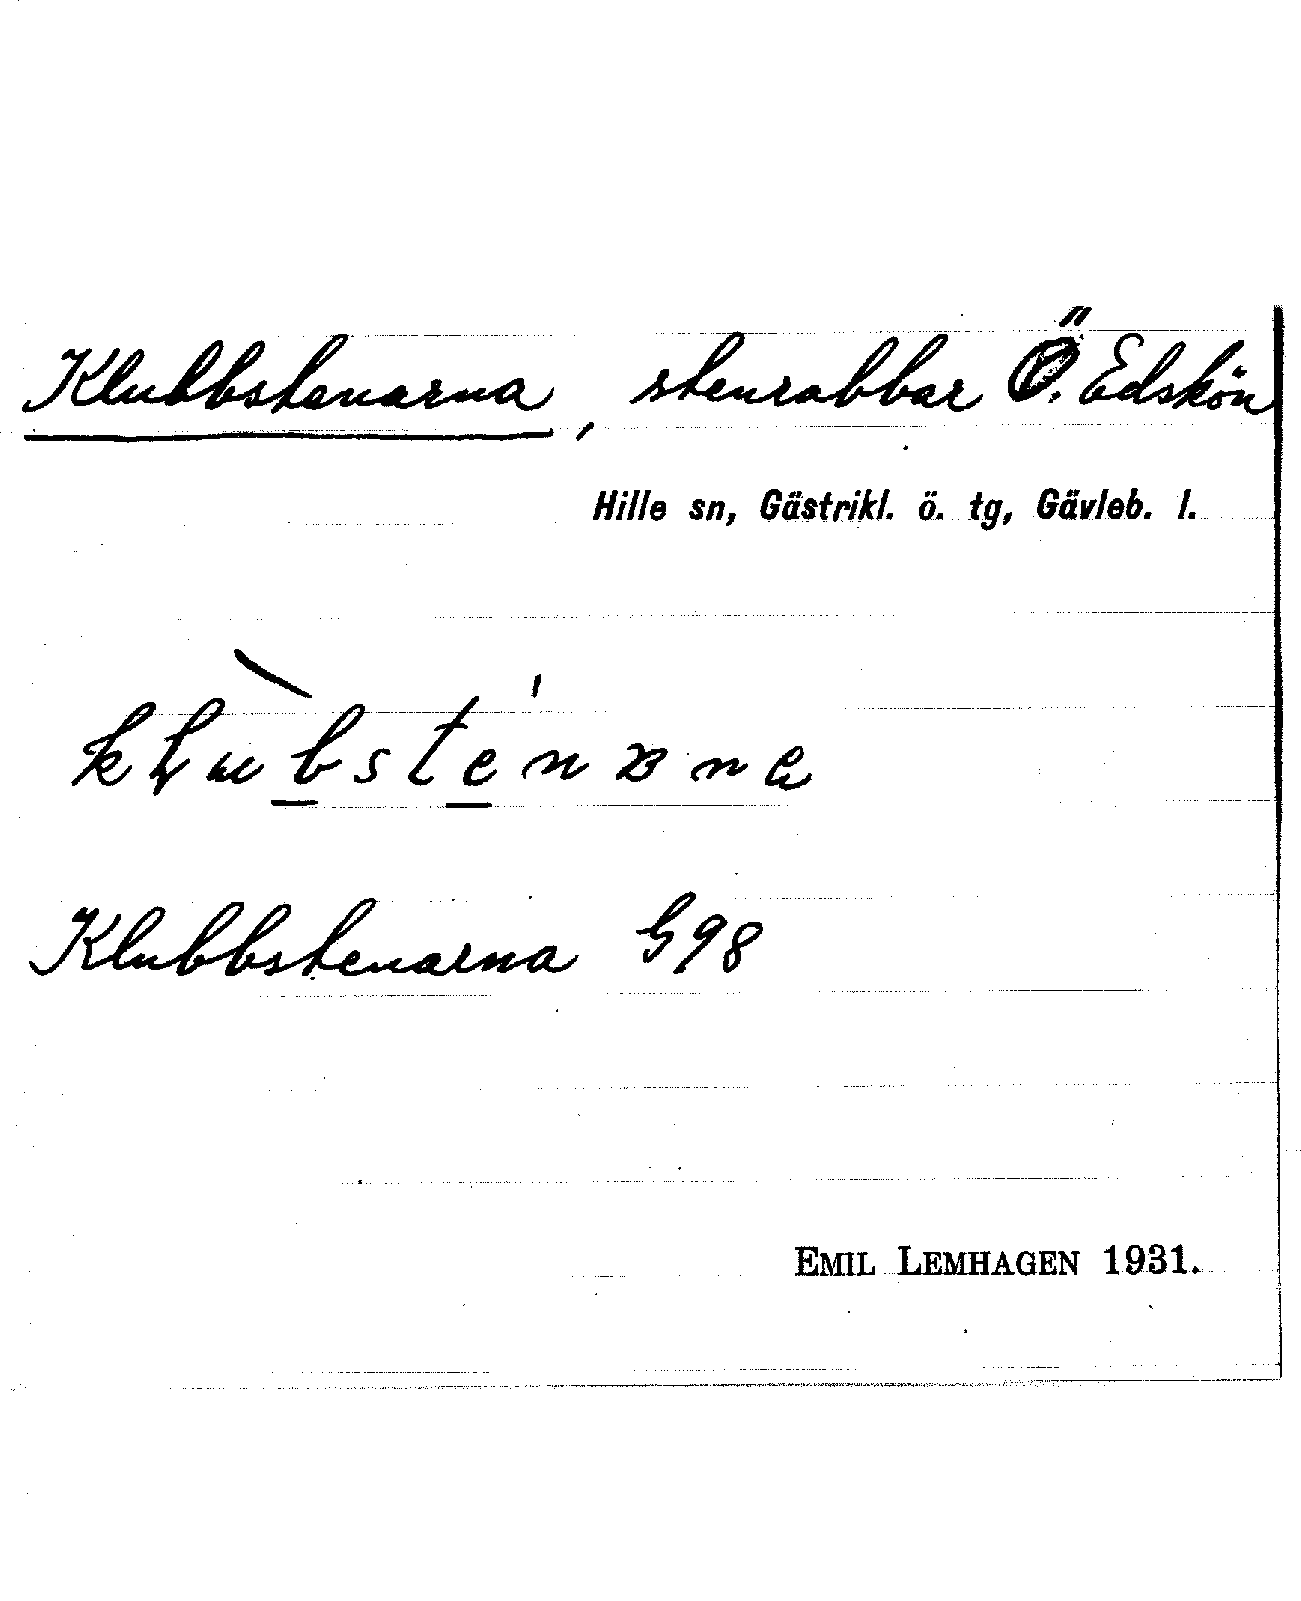 Klubbstenarna, stenrabbar Ö. Edskön
Hille sn, Gästrikl. ö. tg, Gävleb. l.
Klubbstenarna G98
EMIL LEMHAGEN 1931.